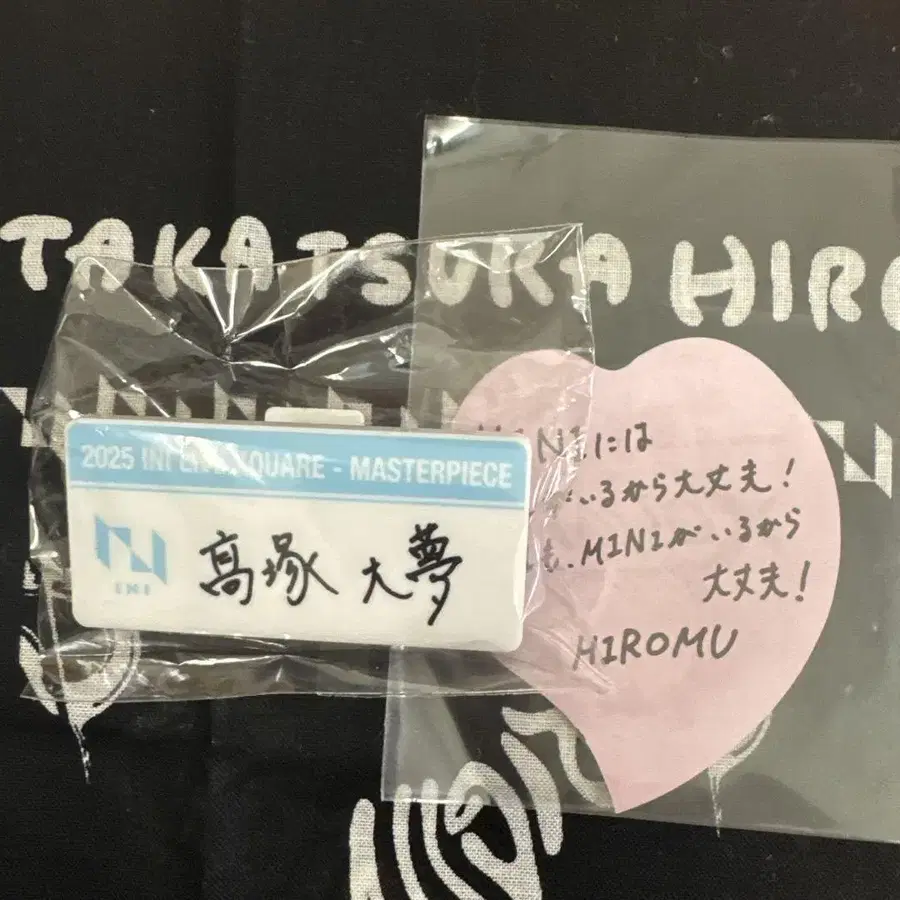 TAKATSUKA HIRO
2025 INI LIVE XQUARE - MASTERPIECE
INI
高塚 大夢
MINIには
がいるから大丈夫!
も、MINIがいるから
大丈夫!
HIROMU